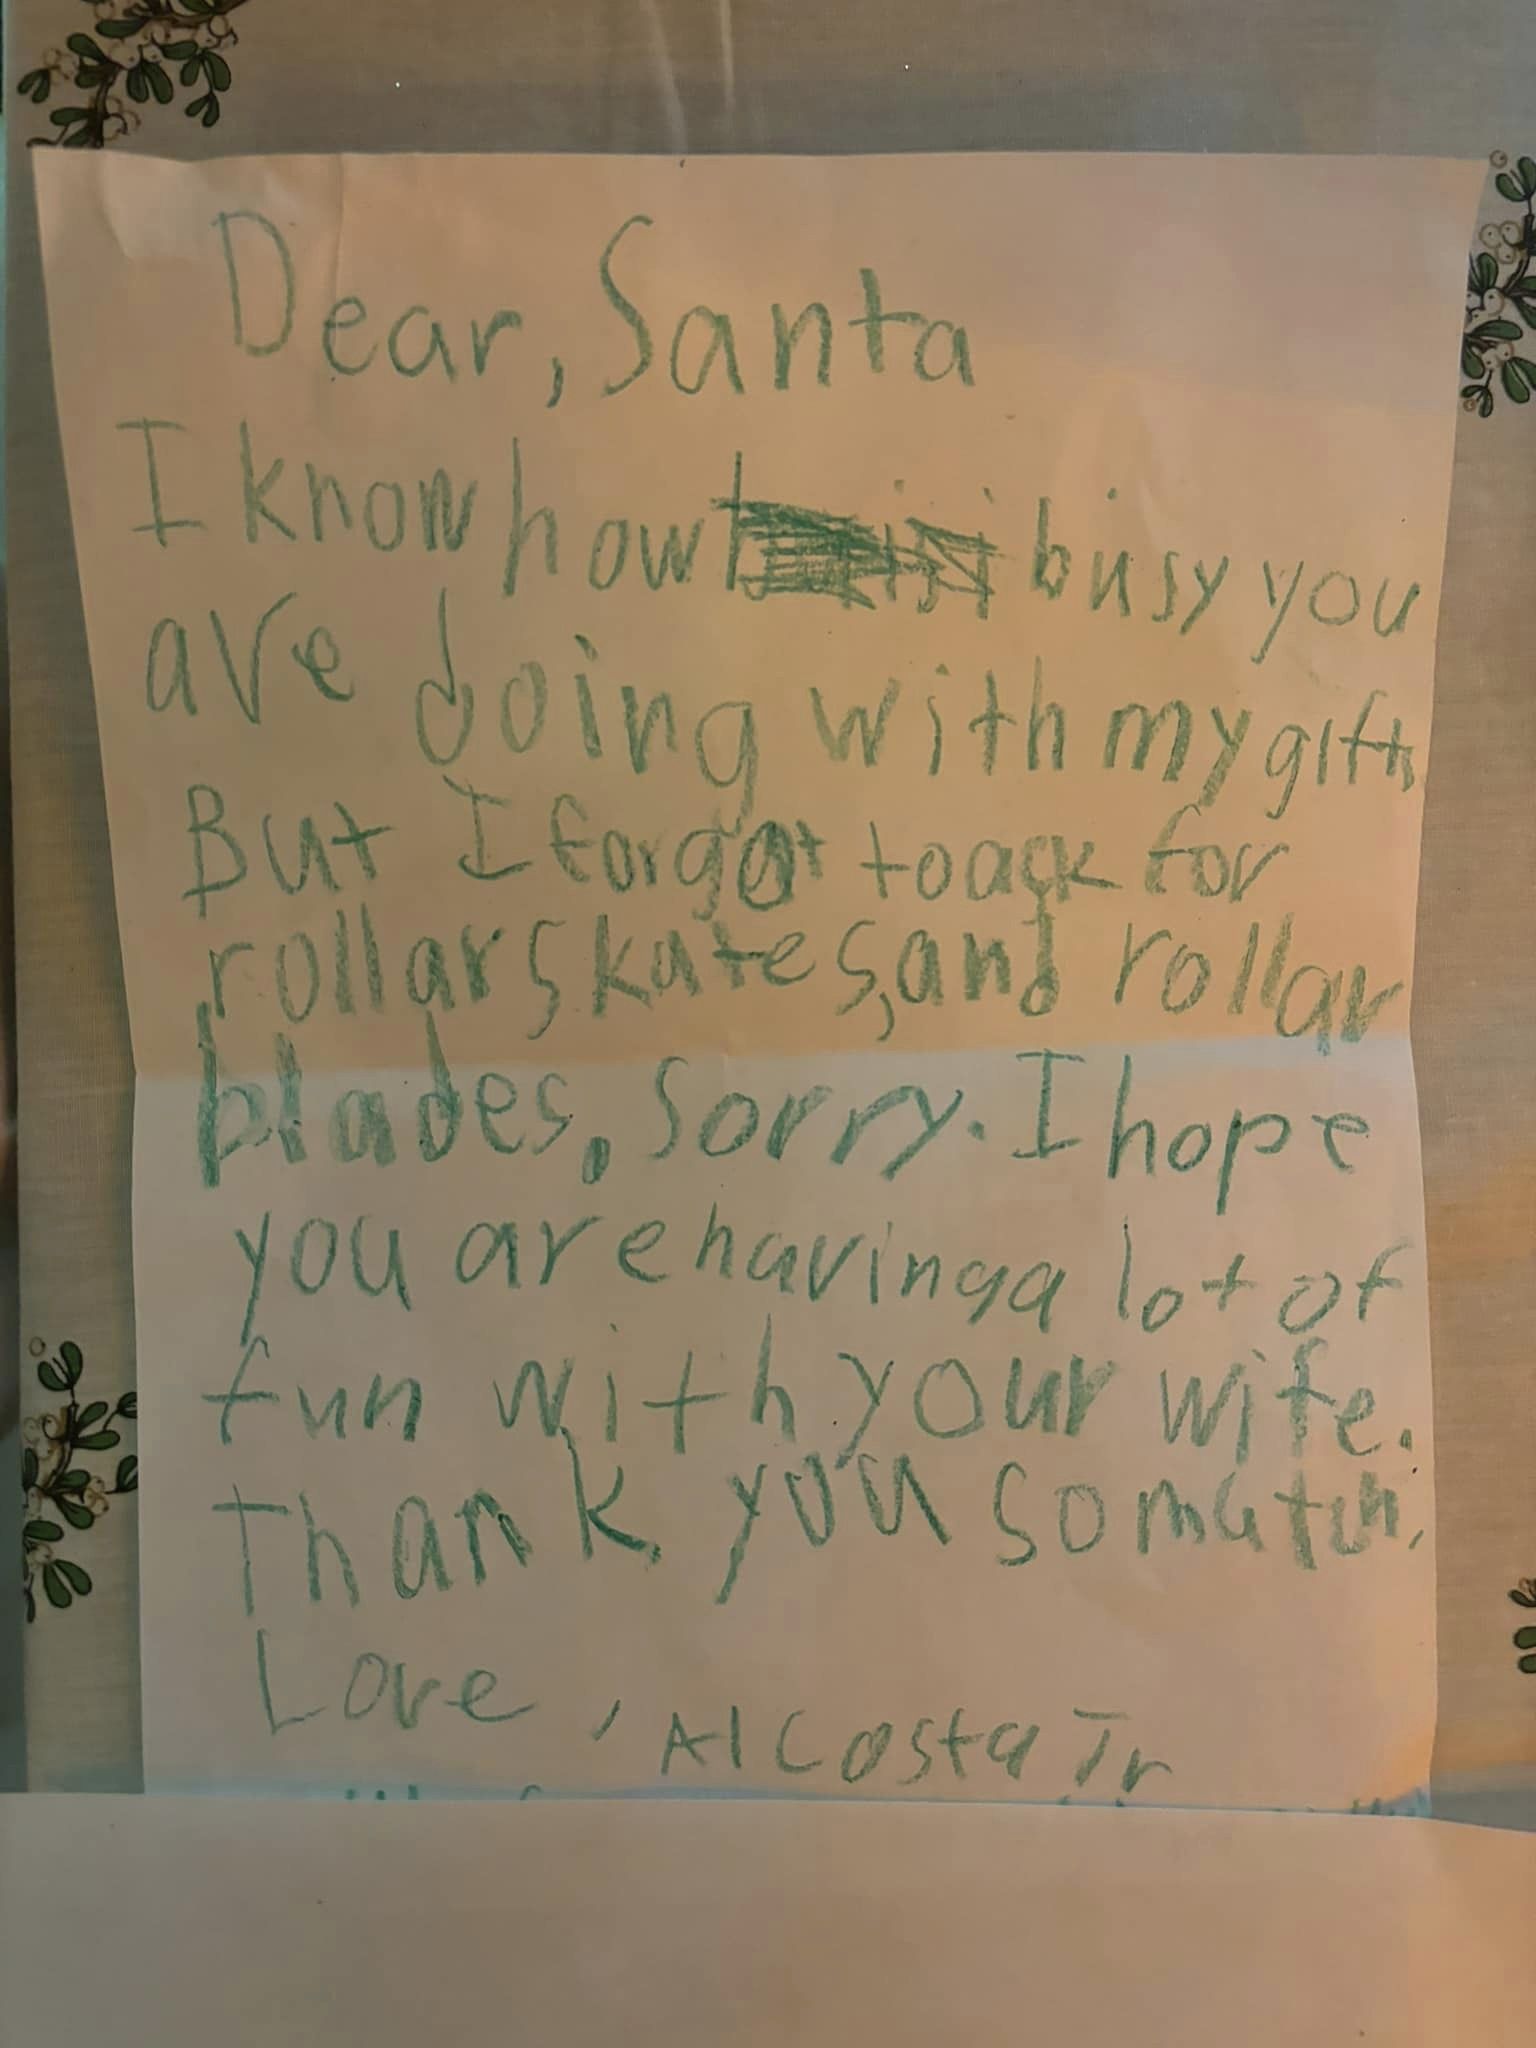 Dear, Santa
I know how busy you
are doing with my gifts
But I forgot to ask for
rollar skates, and rollar
blades, sorry. I hope
you are having a lot of
fun with your wife.
thank you so mutch,
Love, Al Costa Jr